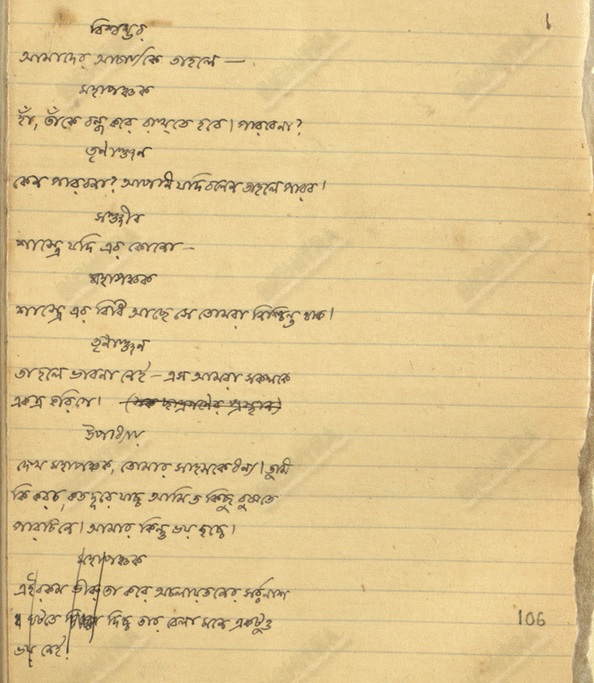 ১
বিশ্বম্ভর
আমাদের আচার্য্যকে তাহলে —
মহাপঞ্চক
হাঁ, তাঁকে বন্ধ করে রাখতে হবে। পারবেনা?
তৃণাঞ্জন
কেন পারবনা? আপনি যদি বলেন তাহলে পারব।
সঞ্জীব
শাস্ত্রে যদি এর কোনো —
মহাপঞ্চক
শাস্ত্রে এর বিধি আছে সে তোমরা নিশ্চিন্ত থাক।
তৃণাঞ্জন
তাহলে ভাবনা নেই — এস আমরা সকলকে
একত্র করিগে।
উপাধ্যায়
দেখ মহাপঞ্চক, তোমার সাহসকে ধন্য। তুমি
কি করচ, কতদূরে যাচ্ছ আমিত কিছু বুঝতে
পারচিনে। আমার কিন্তু ভয় হচ্চে।
মহাপঞ্চক
এইরকম ভীরুতা করে অচলায়তনের সর্ব্বনাশ
ঘটতে দিচ্চ তার বেলা মনে একটুও
ভয় নেই।
106